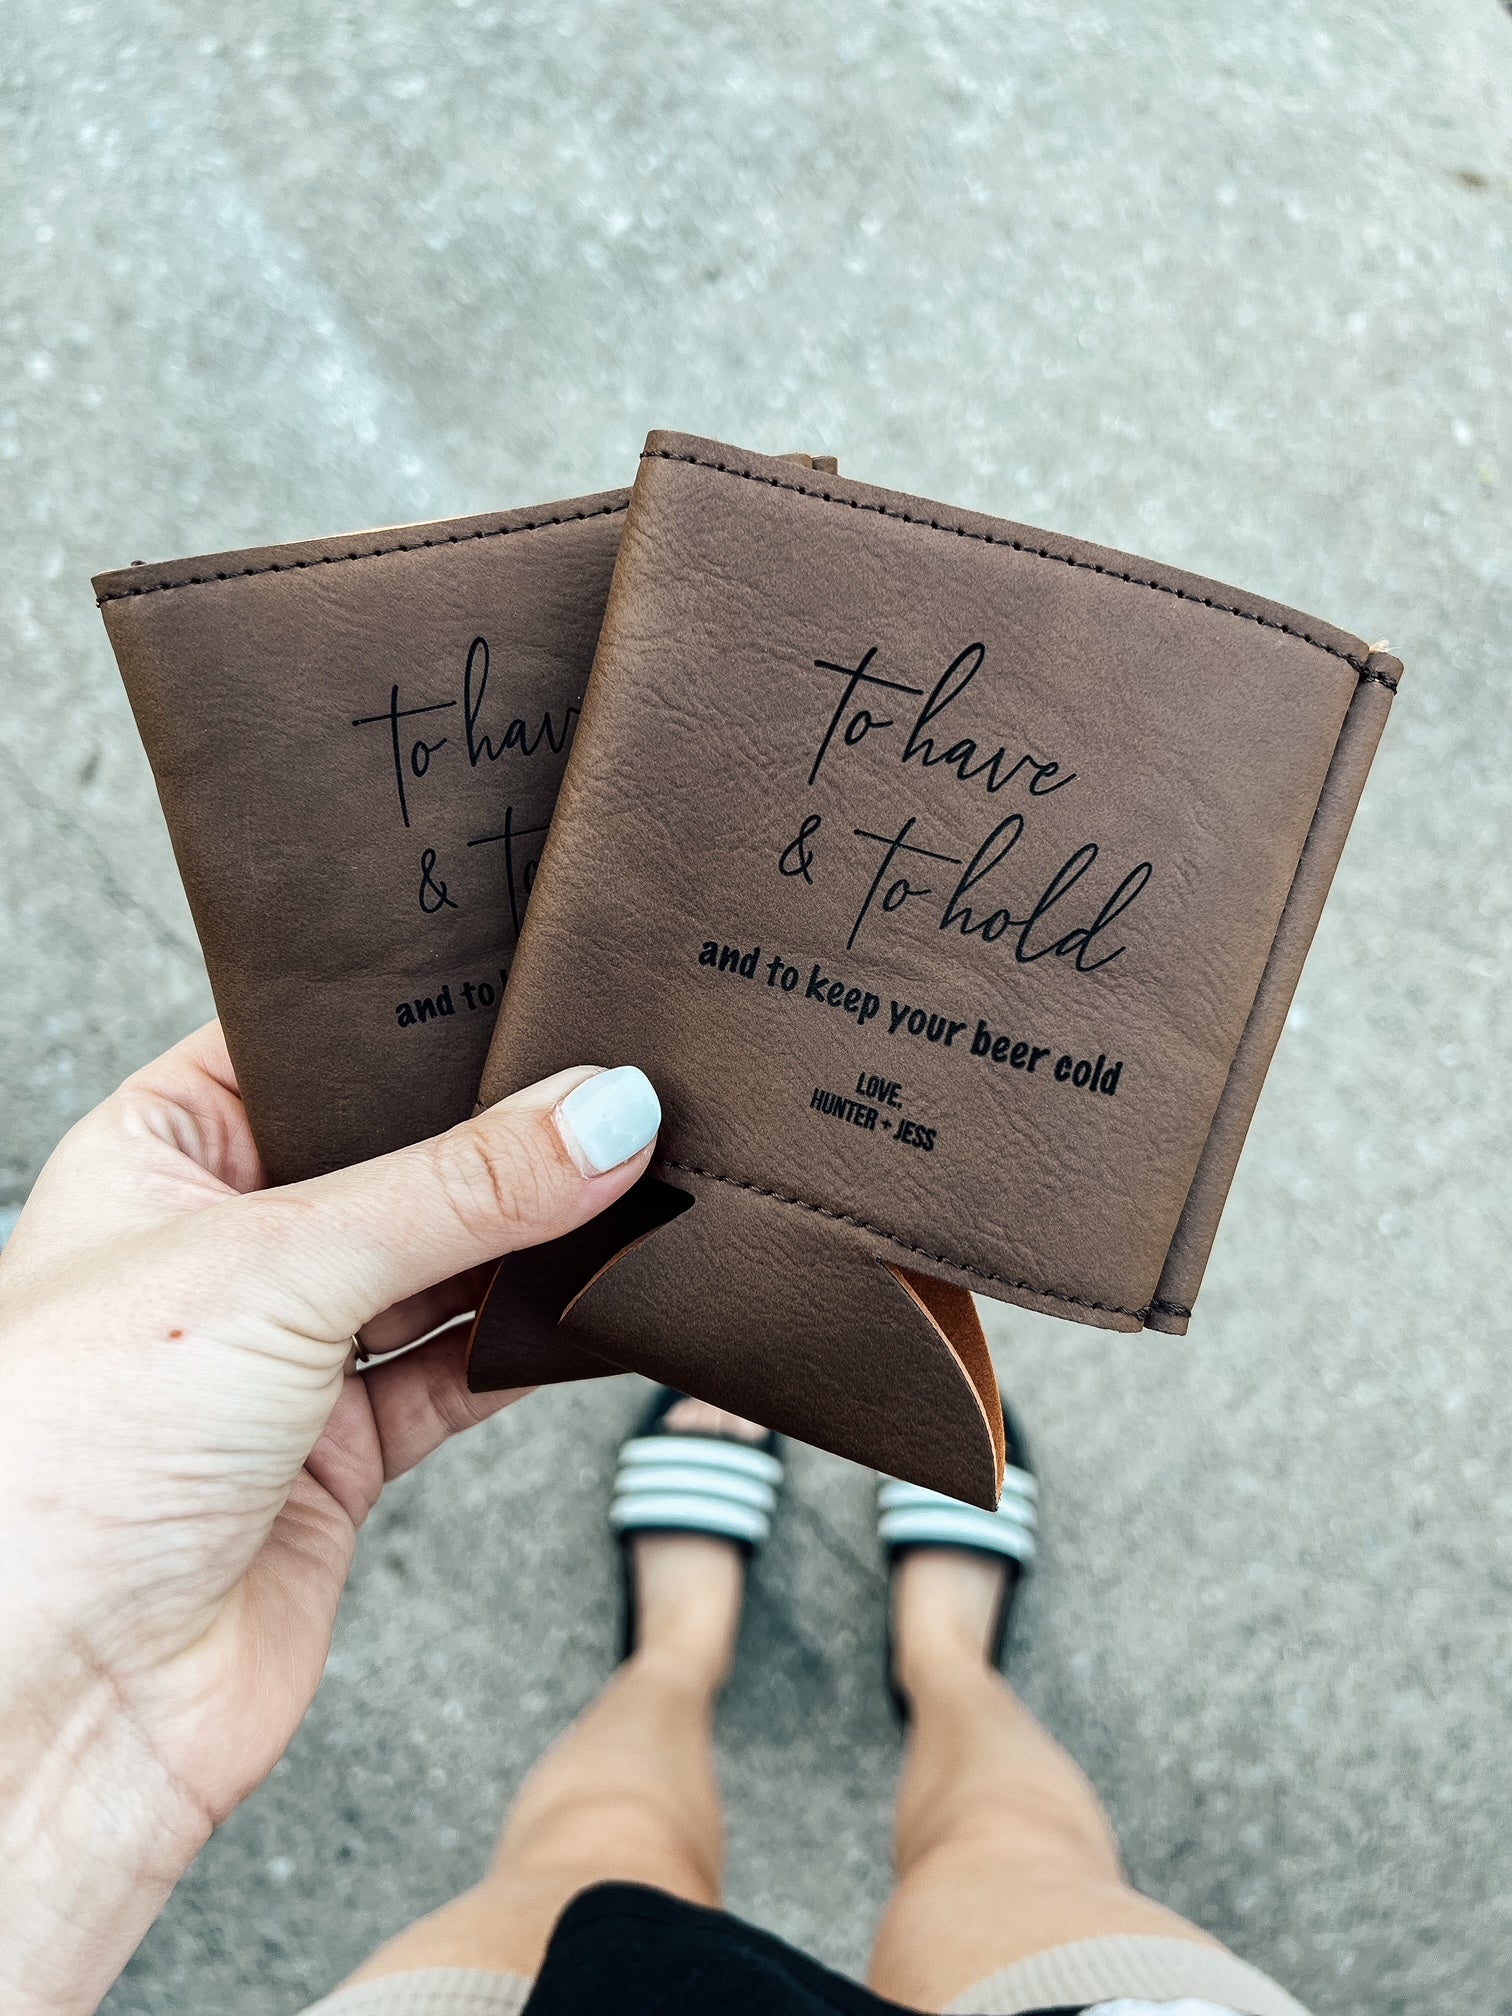 to have
& to
and to
to have
& to hold
and to keep your beer cold
LOVE,
HUNTER + JESS